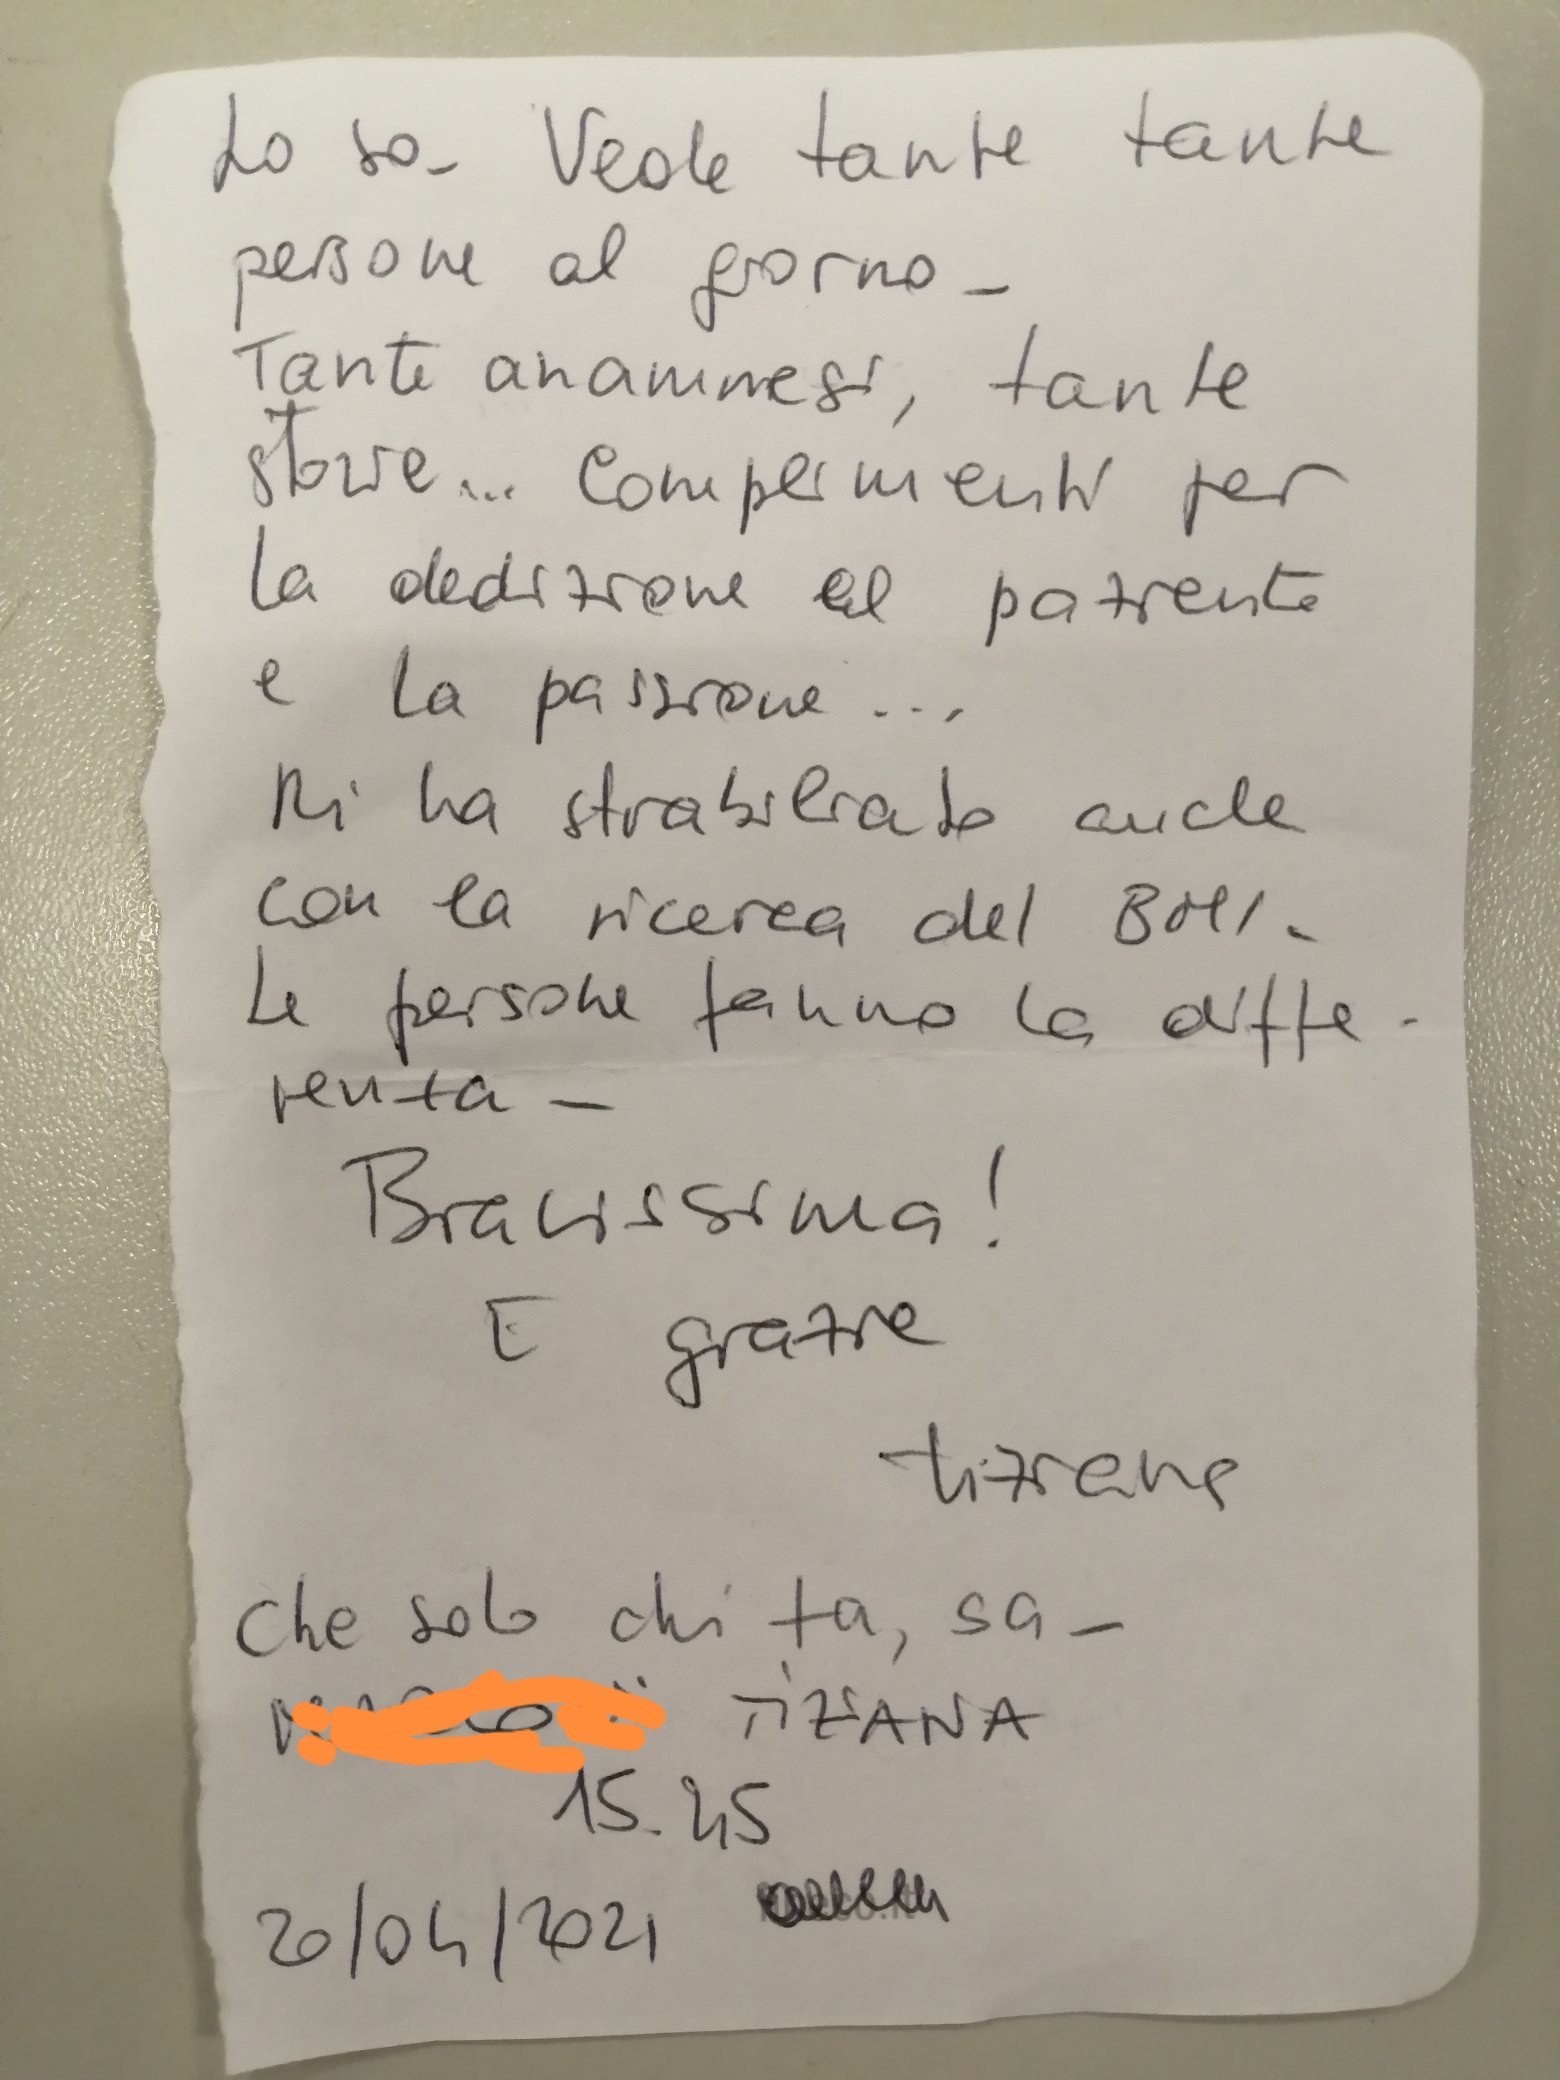 Lo so_ Vede tante tante
persone al giorno_
Tante anamnesi, tante
storie... Complimenti per
la dedizione al paziente
e la passione...
Mi ha strabiliato anche
con la ricerca del BMI.
Le persone fanno la diffe-
renza_
Bravissima!
E grazie
tiziana
Che solo chi fa, sa_
TIZIANA
15.45
20/04/2021